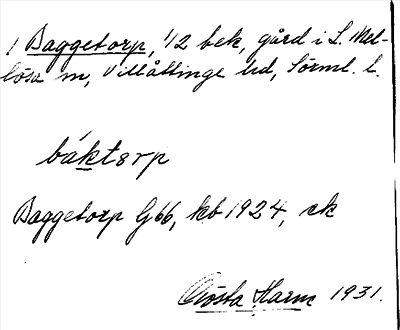 1 Baggetorp, 1/2 bek, gård i L. Mel-
lösa sn, Villåttinge hd, Sörml. l.
báktorp
Baggetorp G 66, kb 1924, ek
Gösta Harm 1931.